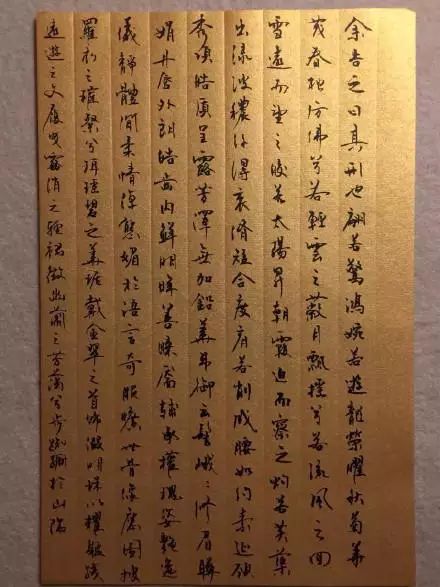 余告之曰其形也翩若驚鴻婉若遊龍榮曜秋菊華
茂春松仿佛兮若輕雲之蔽月飄搖兮若流風之回
雪遠而望之皎若太陽昇朝霞迫而察之灼若芙蕖
出淥波穠纤得衷脩短合度肩若削成腰如約素延頸
秀項皓質呈露芳澤無加鉛華弗御云髻峨峨修眉聯
娟丹唇外朗皓齒内鮮明眸善睞靨輔承權瑰姿艷逸
儀靜體閒柔情綽態媚於語言奇服曠世骨像應圖披
羅衣之璀粲兮珥瑤碧之華琚戴金翠之首飾綴明珠以耀軀踐
遠遊之文履曳霧綃之輕裾微幽蘭之芳藹兮步踟躕於山隅